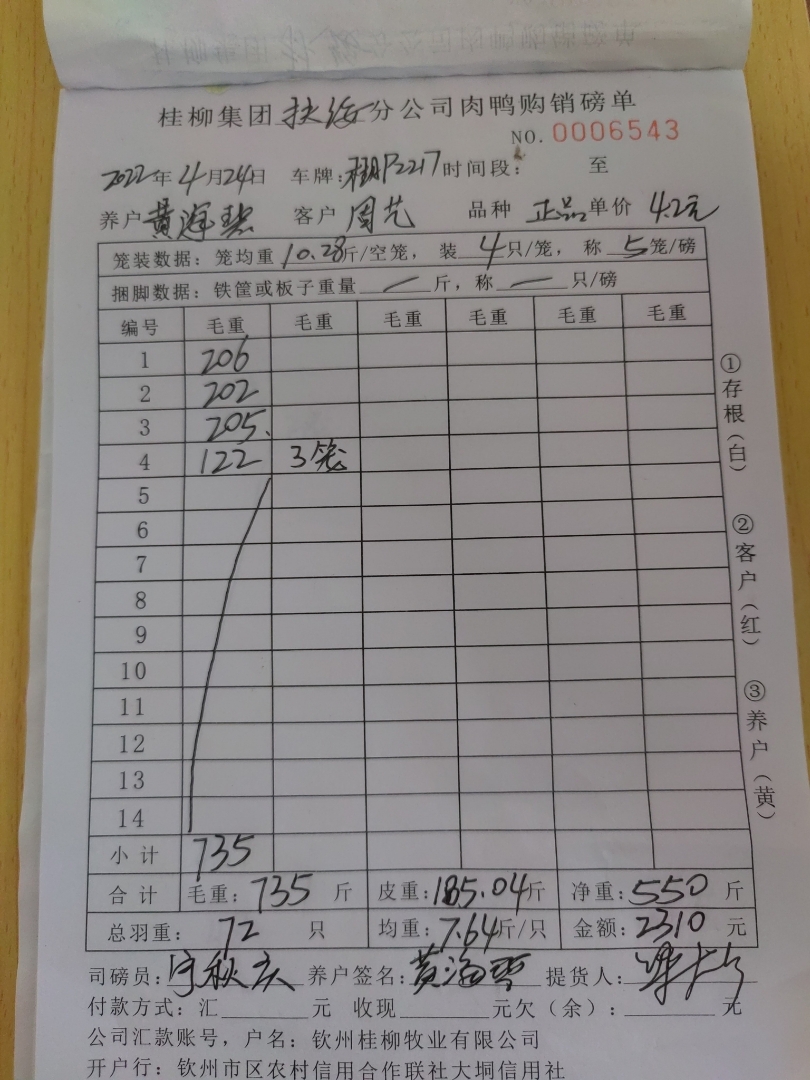 桂柳集团扶绥分公司肉鸭购销磅单
NO. 0006543
2022年4月24日 车牌:P2217时间段: 至
养户黄海碧 客户 周艺 品种 正品单价 4.2元
笼装数据: 笼均重10.28斤/空笼, 装4只/笼, 称5笼/磅
捆脚数据: 铁筐或板子重量 — 斤, 称 — 只/磅
编号 毛重 毛重 毛重 毛重 毛重 毛重
1 206
2 202
3 205.
4 122 3笼
5
6
7
8
9
10
11
12
13
14
小计 735
合计 毛重:735斤 皮重:185.04斤 净重:550斤
总羽重: 72 只 均重:7.64斤/只 金额:2310元
司磅员: 养户签名:黄海碧 提货人:
付款方式: 汇 元 收现 元欠(余): 元
公司汇款账号, 户名: 钦州桂柳牧业有限公司
开户行: 钦州市区农村信用合作联社大垌信用社
①存根(白)
②客户(红)
③养户(黄)